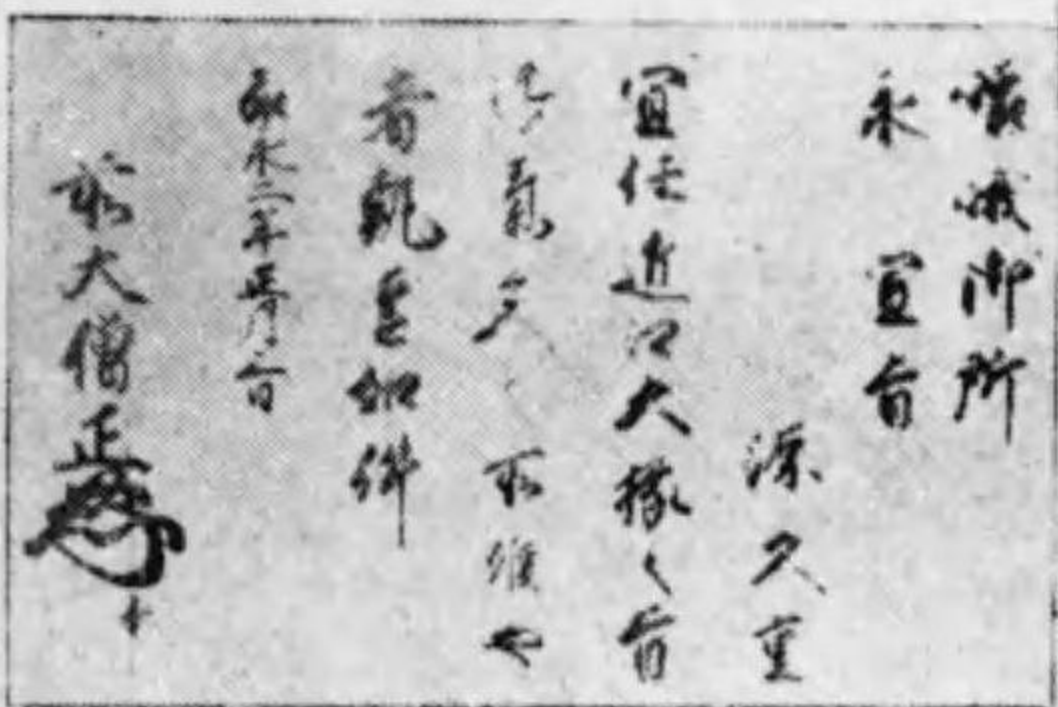 嵯峨御所
永宣旨
源久重
宜任近江大掾之旨
御氣色之所候也
者執達如件
嘉永二年正月
前大僧正